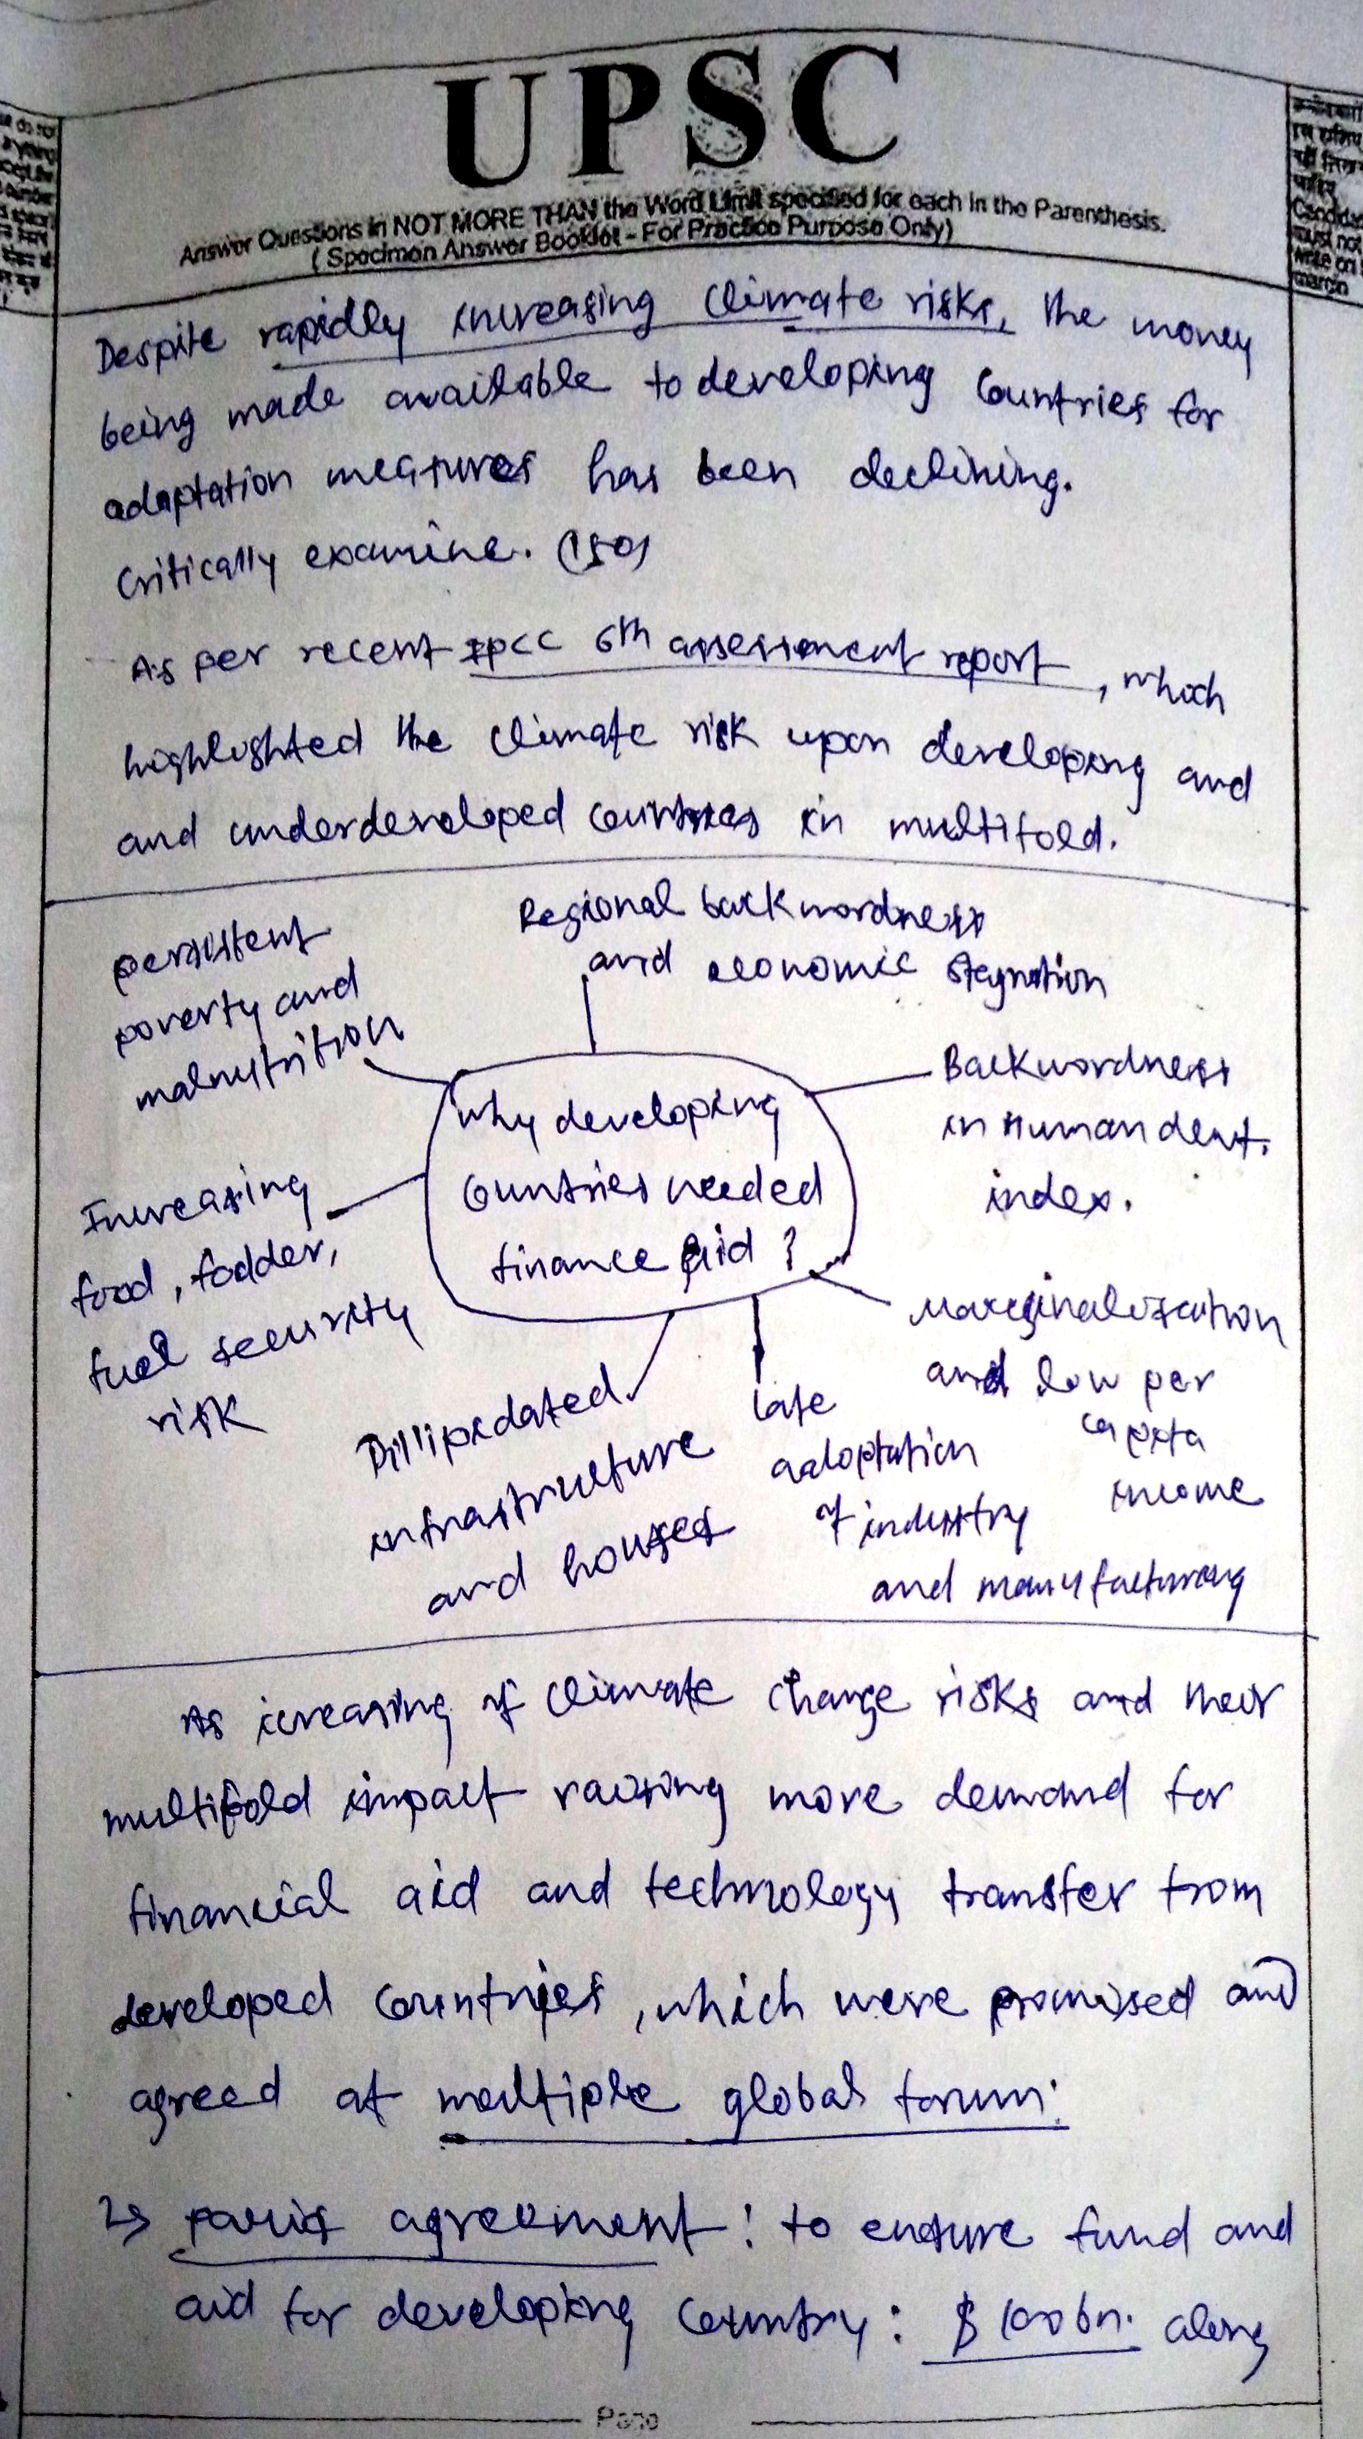 UPSC
Answer Questions in NOT MORE THAN the Word Limit specified for each in the Parenthesis.
( Specimen Answer Booklet - For Practice Purpose Only)
Candida
must not
write on
margin
Despite rapidly increasing climate risks, the money
being made available to developing countries for
adaptation measures has been declining.
Critically examine. (150)
As per recent IPCC 6th assessment report, which
highlighted the climate risk upon developing and
and underdeveloped countries in multifold.
Regional backwordness
and economic stagnation
persistent
poverty and
malnutrition
Backwordness
in Human devt.
index.
why developing
countries needed
finance aid ?
Increasing
food, fodder,
fuel security
risk
Marginalization
and low per
capita
income
Dillipidated
infrastructure
and houses
late
adoptation
of industry
and manufacturing
As icreasing of climate change risks and their
multifold impact raising more demand for
financial aid and technology transfer from
developed countries, which were promised and
agreed at multiple global forum:
↳ paris agreement: to ensure fund and
aid for developing country: $100bn. along
Page